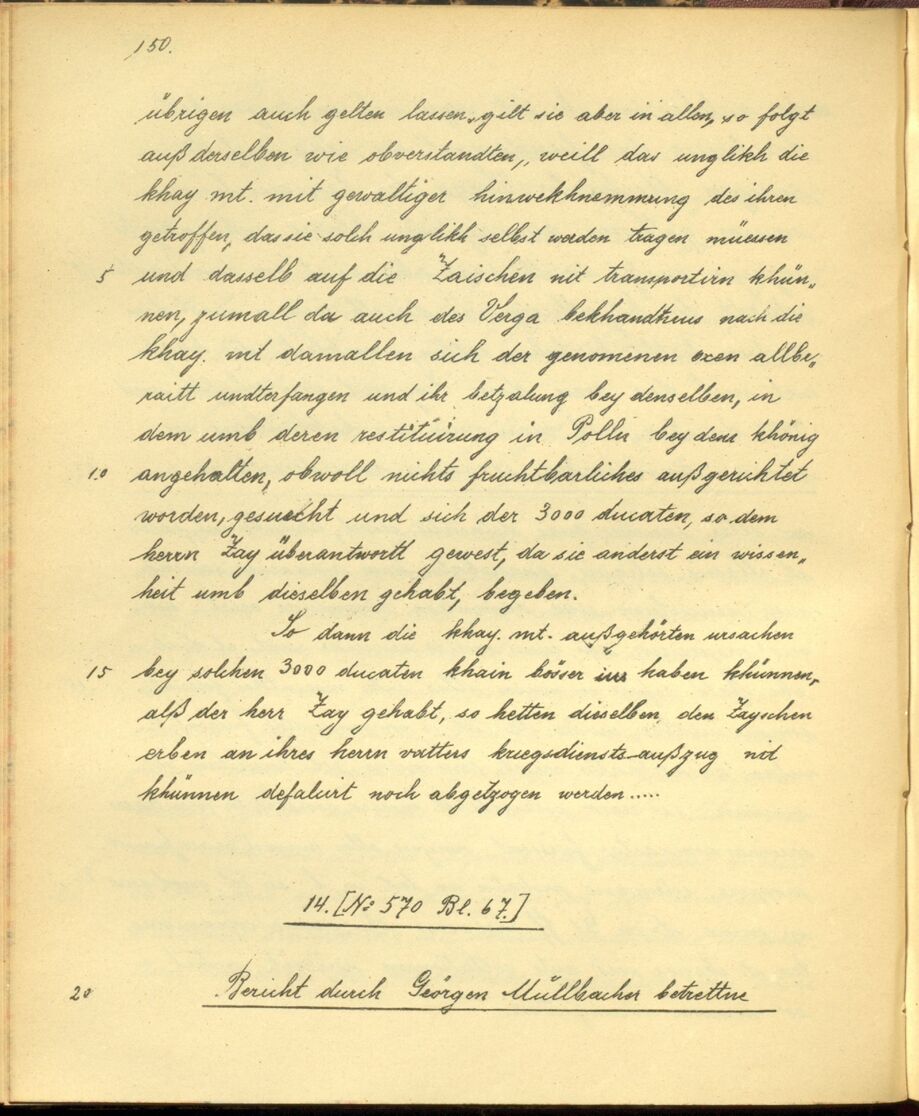 150.
übrigen auch gelten lassen, gilt sie aber in allen, so folgt
auß derselben wie obverstandten, weill das unglikh die
khay mt. mit gewaltiger hinwekhnemmung des ihren
getroffen, das sie solch unglikh selbst werden tragen müessen
5 und dasselb auf die Zaischen nit transportirn khün„
nen, zumall da auch des Verga bekhandtnus nach die
khay. mt damallen sich der genomenen oxen allbe„
raitt undterfangen und ihr betzalung bey denselben, in
dem umb deren restituirung in Polln bey dem khönig
10 angehalten, obwoll nichts fruchtbarliches außgerichtet
worden, gesuecht und sich der 3000 ducaten, so dem
herrn Zay überantwortt gewest, da sie anderst ein wissen„
heit umb dieselben gehabt, begeben.
So dann die khay. mt. außgehörten ursachen
15 bey solchen 3000 ducaten khain bösser ius haben khünnen,
alß der herr Zay gehabt, so hetten dieselben den Zayschen
erben an ihres herrn vatters kriegsdiensts-außzug nit
khünnen defalcirt noch abgetzogen werden.....
14. [No 570 Bl. 67.]
20 Bericht durch Geörgen Müllbacher betrettne